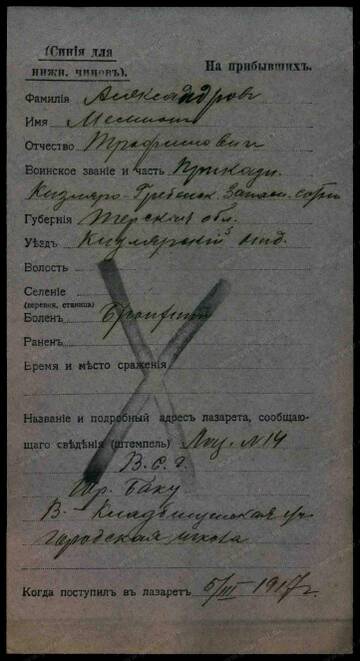 (Синія для
нижн. чиновъ).
На прибывшихъ.
Фамилія Александровъ
Имя
Отчество Трофимович
Воинское званіе и часть Приказн.
Кизляро-Гребенск. Запасн. сотни
Губернія Терская обл.
Уѣздъ Кизлярскій отд.
Волость
Селеніе
(деревня, станица)
Боленъ Бронхит
Раненъ
Время и мѣсто сраженія
Названіе и подробный адресъ лазарета, сообщаю-
щаго свѣдѣнія (штемпель) Лаз. №14
В.С.Г.
Гор. Баку
В- ул.
Городская школа
Когда поступилъ въ лазаретъ 5/III 1917г.